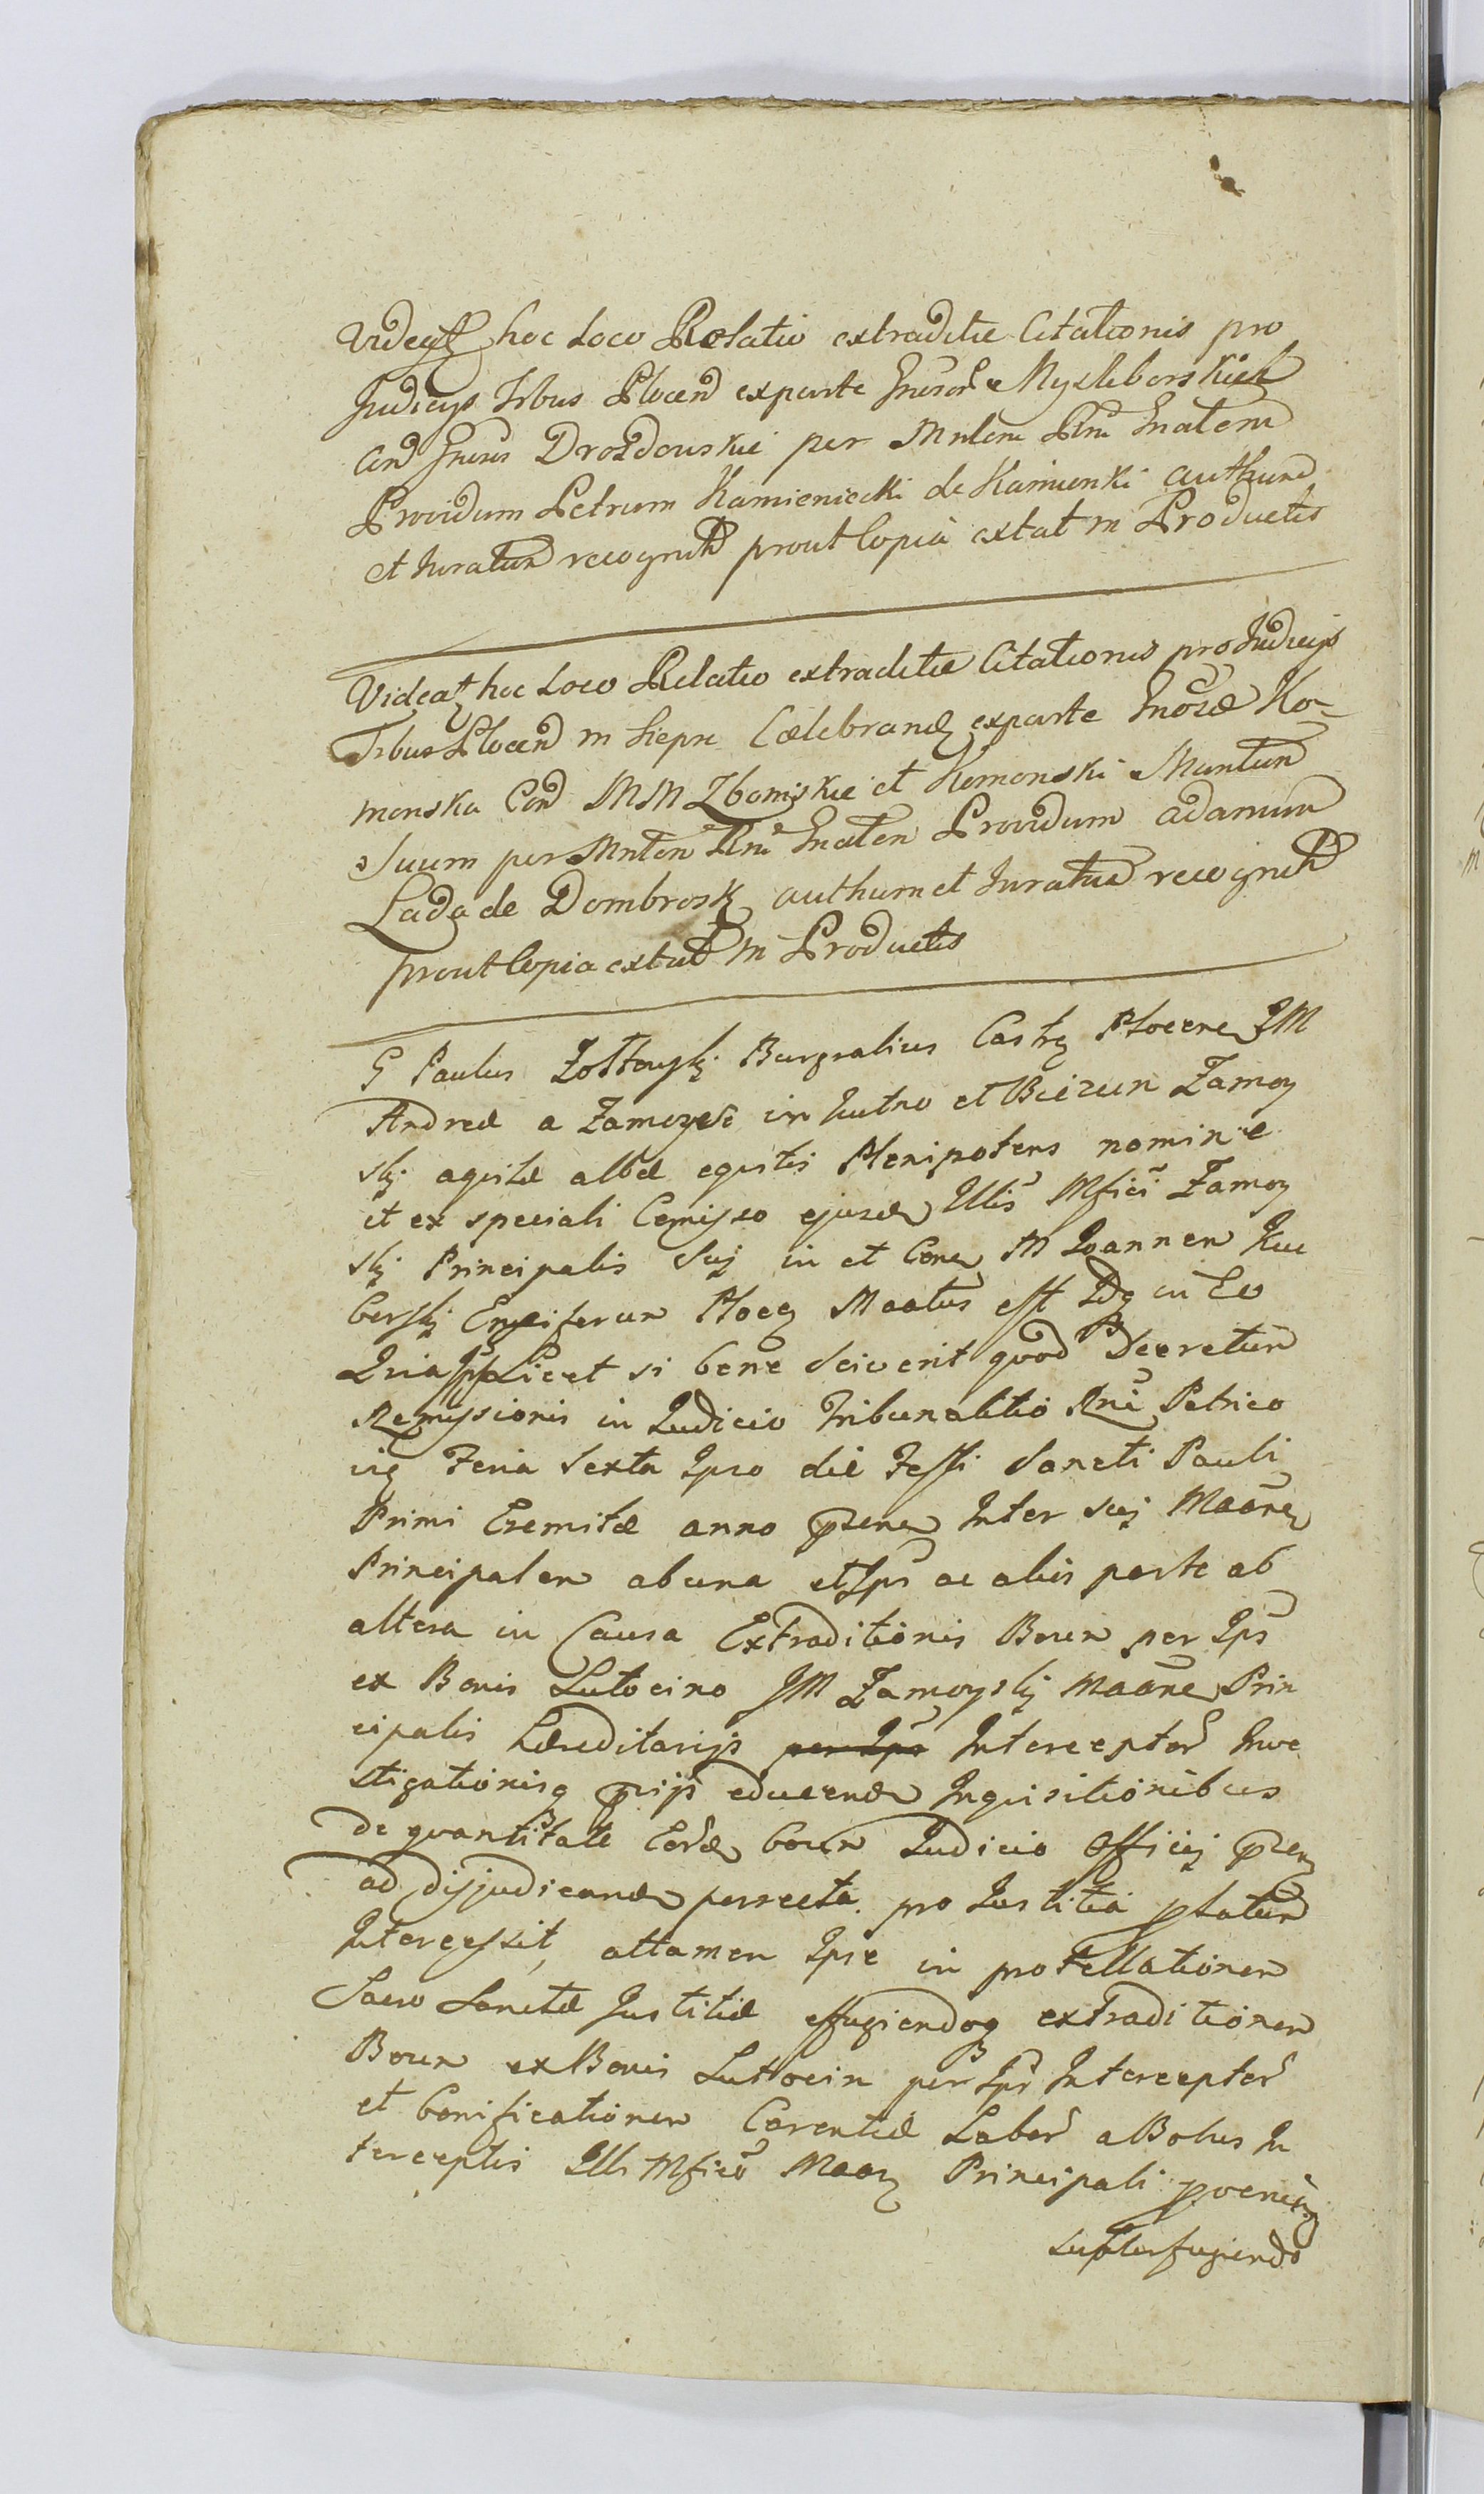 Videat hoc Loco Relatio extraditæ Citationis pro
Judicys Trbus Plocen ex parte Gnesor Myszleborskich
con Gnesus Drozdowskie per Mnlem Rm Gnalem
Providum Petrum Kamieniecki de Kamionki authum
et Juratum recognit prout Copia extat in Productis
Videat hoc Loco Relatio extraditæ Citationis pro Judicijs
Trbus Plocen in Siepn Cœlebrand ex parte Gnosæ Ko-
monska Con MM Zbomiskie et Komonski Maritum
Suum per Mnlen Rm Gnalen Providum Adamum
Lada de Dombrosk authum et Juratum recognit
prout Copia extat in Productis
G Paulus Zołtowski Burgrabius Castr Plocene JM
Andreæ a Zamoyscie in Kutno et Biezun Zamoy
skj aquilæ albæ equitis Plenipotens nomine
et ex speciali Comisso ejusd Illis Mfici Zamoy
skj Principalis Suj in et Cona M Joannen Kuc
borskj Ensiferun Ploc Maatus est Idq in Eo
Quia Ips Licet si bene sciverit quod Decretum
Remyssionis in Judicio Tribunalitio Rni Petrico
vię Feria Sexta Ipso die Festi Sancti Pauli
Primi Eremitæ anno præsen Inter suj Maane
Principalen ab una et Ips ac aliis parte ab
altera in Causa Extraditionis Boum per Ips
ex Bonis Lutocino JM Zamoyskj Maane Prin
cipalis Hæreditarijs per Ips Interceptor Inve
stigationisq prijs educend Inquisitionibus
de quantitate Eord boum Judicio Officij præsen
ad disjudicand perrecta pro Justitia platum
Intercessit, attamen Ipse in protellationen
Sacro Sanctæ Justitiæ effugiendoq extraditionen
Boum ex Bonis Lutocin per Ips Interceptor
et bonificationen Carentiæ Labor a Bobus In
terceptis Ill Mfico Maan Principali pvenien
Subterfugiendo